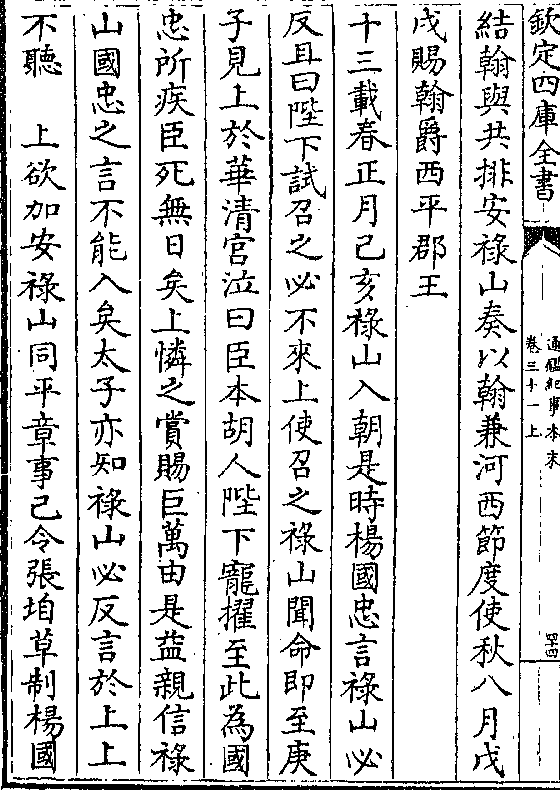 欽定四庫全書
通鑑紀事本末
卷三十一上
四十四
結翰與共排安祿山奏以翰兼河西節度使秋八月戊
戌賜翰爵西平郡王
十三載春正月己亥祿山入朝是時楊國忠言祿山必
反且曰陛下試召之必不來上使召之祿山聞命即至庚
子見上於華清宮泣曰臣本胡人陛下寵擢至此為國
忠所疾臣死無日矣上憐之賞賜巨萬由是益親信祿
山國忠之言不能入矣太子亦知祿山必反言於上上
不聽　上欲加安祿山同平章事己令張垍草制楊國